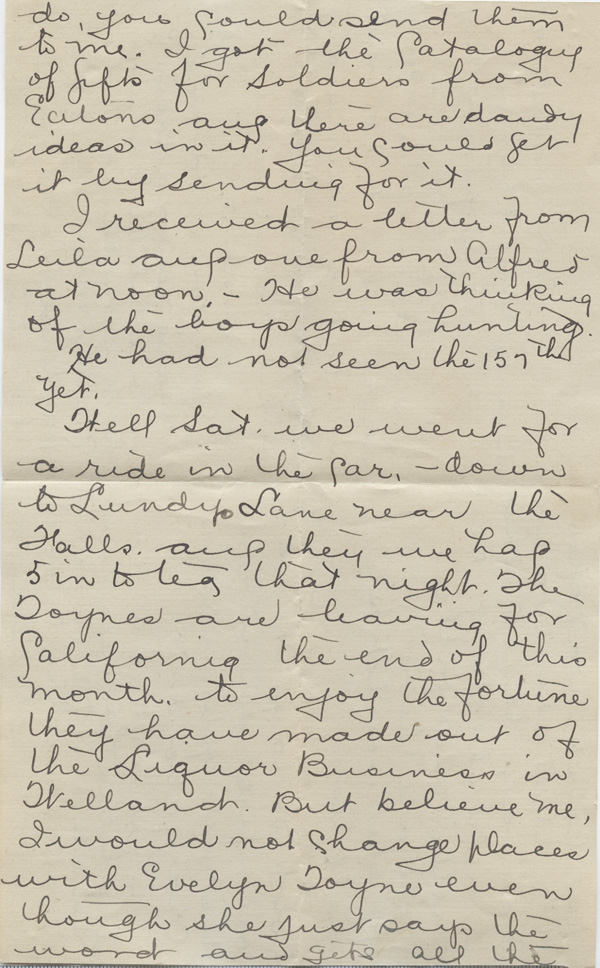 do, you could send them
to me. I got the Catalogue
of gifts for soldiers from
Eatons and there are dandy
ideas in it. You could get
it by sending for it.
I received a letter from
Leila and one from Alfred
at noon, - He was thinking
of the boys going hunting.
He had not seen the 157th
yet.
Well Sat. we went for
a ride in the car, - down
to Lundy's Lane near the
Falls. and they we had
5 in to tea that night. The
Toynes are leaving for
California the end of this
month. to enjoy the fortune
they have made out of
the Liquor Business in
Welland. But believe me,
I would not change places
with Evelyn Toyne even
though she just says the
word and gets all the